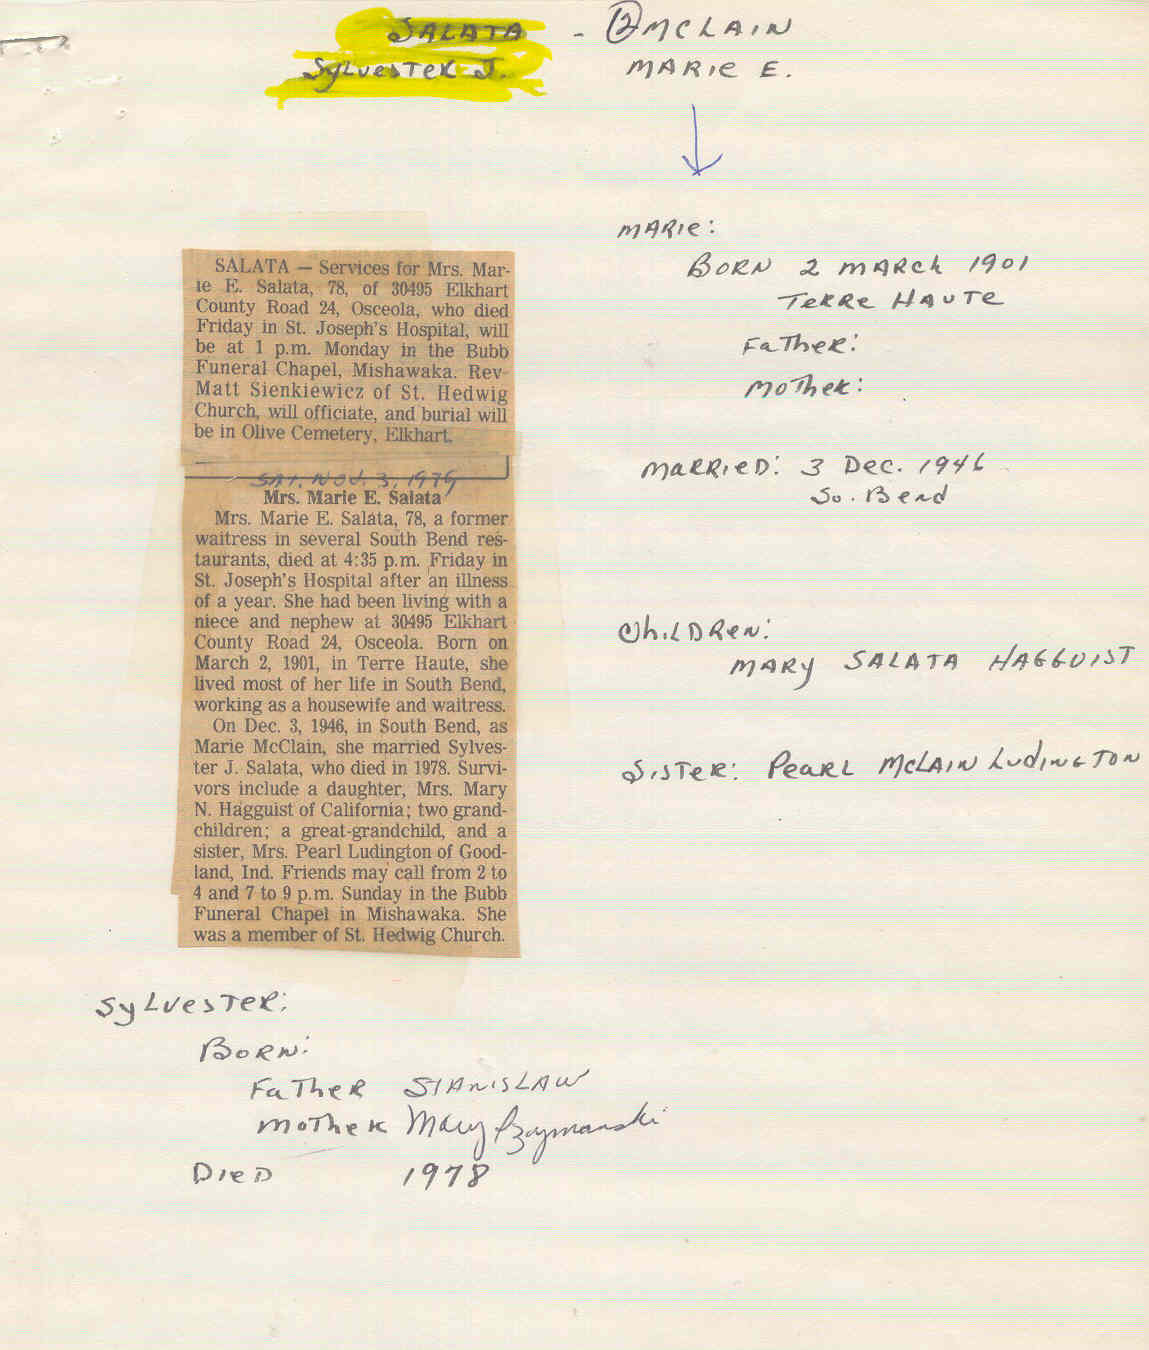 SALATA - ② MCLAIN
SYLVESTER J. MARIE E.
MARIE:
BORN 2 MARCH 1901
TERRE HAUTE
FATHER:
MOTHER:
MARRIED: 3 DEC. 1946
So. Bend
CHILDREN:
MARY SALATA HAGGUIST
SISTER: PEARL MCLAIN LUDINGTON
SALATA — Services for Mrs. Mar-
ie E. Salata, 78, of 30495 Elkhart
County Road 24, Osceola, who died
Friday in St. Joseph's Hospital, will
be at 1 p.m. Monday in the Bubb
Funeral Chapel, Mishawaka. Rev
Matt Sienkiewicz of St. Hedwig
Church, will officiate, and burial will
be in Olive Cemetery, Elkhart.
SAT. NOV. 3, 1979
Mrs. Marie E. Salata
Mrs. Marie E. Salata, 78, a former
waitress in several South Bend res-
taurants, died at 4:35 p.m. Friday in
St. Joseph's Hospital after an illness
of a year. She had been living with a
niece and nephew at 30495 Elkhart
County Road 24, Osceola. Born on
March 2, 1901, in Terre Haute, she
lived most of her life in South Bend,
working as a housewife and waitress.
On Dec. 3, 1946, in South Bend, as
Marie McClain, she married Sylves-
ter J. Salata, who died in 1978. Survi-
vors include a daughter, Mrs. Mary
N. Hagguist of California; two grand-
children; a great-grandchild, and a
sister, Mrs. Pearl Ludington of Good-
land, Ind. Friends may call from 2 to
4 and 7 to 9 p.m. Sunday in the Bubb
Funeral Chapel in Mishawaka. She
was a member of St. Hedwig Church.
SYLVESTER:
BORN:
FATHER STANISLAW
MOTHER Mary
DIED 1978